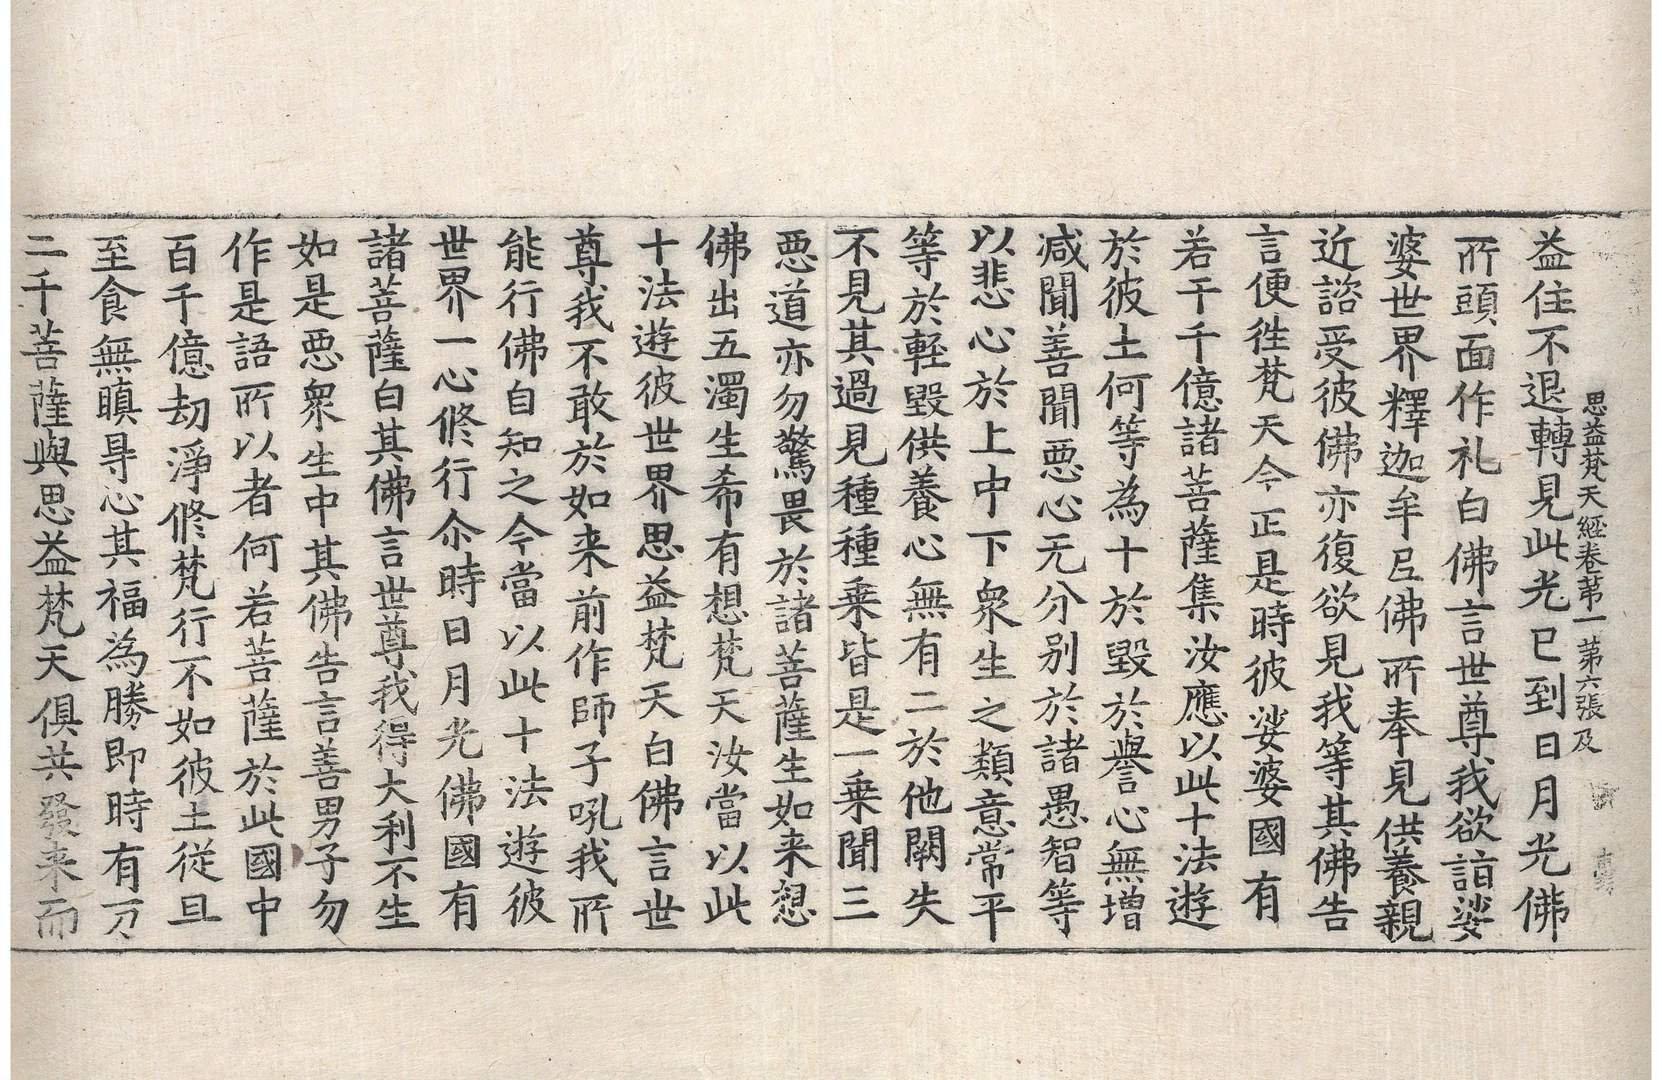 思益梵天経卷苐一 第六張 及
益住不退轉見此光已到日月光佛
所頭面作礼白佛言世尊我欲詣娑
婆世界釋迦牟尼佛所奉見供養親
近諮受彼佛亦復欲見我等其佛告
言便徃梵天今正是時彼娑婆國有
若干千億諸菩薩集汝應以此十法遊
於彼土何等為十於毀於譽心無増
减聞善聞悪心无分别於諸愚智等
以悲心於上中下衆生之類意常平
等於軽毀供養心無有二於他闕失
不見其過見種種乗皆是一乗聞三
悪道亦勿驚畏於諸菩薩生如来想
佛出五濁生希有想梵天汝當以此
十法遊彼世界思益梵天白佛言世
尊我不敢於如来前作師子吼我所
能行佛自知之今當以此十法遊彼
世界一心修行尒時日月光佛國有
諸菩薩白其佛言世尊我得大利不生
如是悪衆生中其佛告言善男子勿
作是語所以者何若菩薩於此國中
百千億劫淨修梵行不如彼土従旦
至食無瞋㝵心其福為勝即時有万
二千菩薩與思益梵天俱共發来而